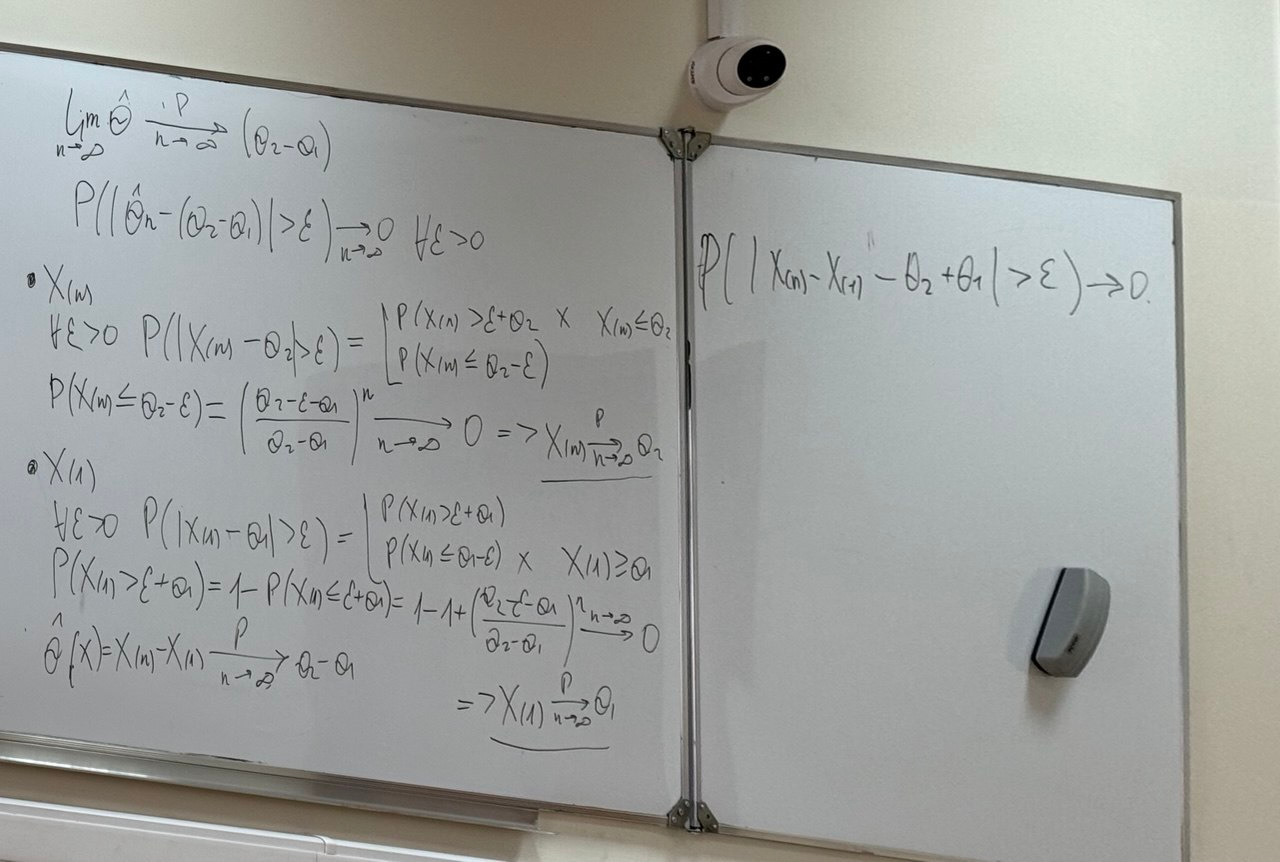 lim θ̂ →^P_{n→∞} (θ₂-θ₁)
n→∞
P(|θ̂n-(θ₂-θ₁)|>ε) →_{n→∞} 0 ∀ε>0
• X(n)
∀ε>0 P(|X(n)-θ₂|>ε) = [ P(X(n)>ε+θ₂ × X(n)≤θ₂
P(X(n)≤θ₂-ε)
P(X(n)≤θ₂-ε) = ((θ₂-ε-θ₁)/(θ₂-θ₁))^n →_{n→∞} 0 => X(n) →^P_{n→∞} θ₂
• X(1)
∀ε>0 P(|X(1)-θ₁|>ε) = [ P(X(1)>ε+θ₁)
P(X(1)≤θ₁-ε) × X(1)≥θ₁
P(X(1)>ε+θ₁) = 1-P(X(1)≤ε+θ₁) = 1-1+((θ₂-ε-θ₁)/(θ₂-θ₁))^n →^{n→∞} 0
θ̂(X)=X(n)-X(1) →^P_{n→∞} θ₂-θ₁
=> X(1) →^P_{n→∞} θ₁
P(|X(n)-X(1)-θ₂+θ₁|>ε)→0.